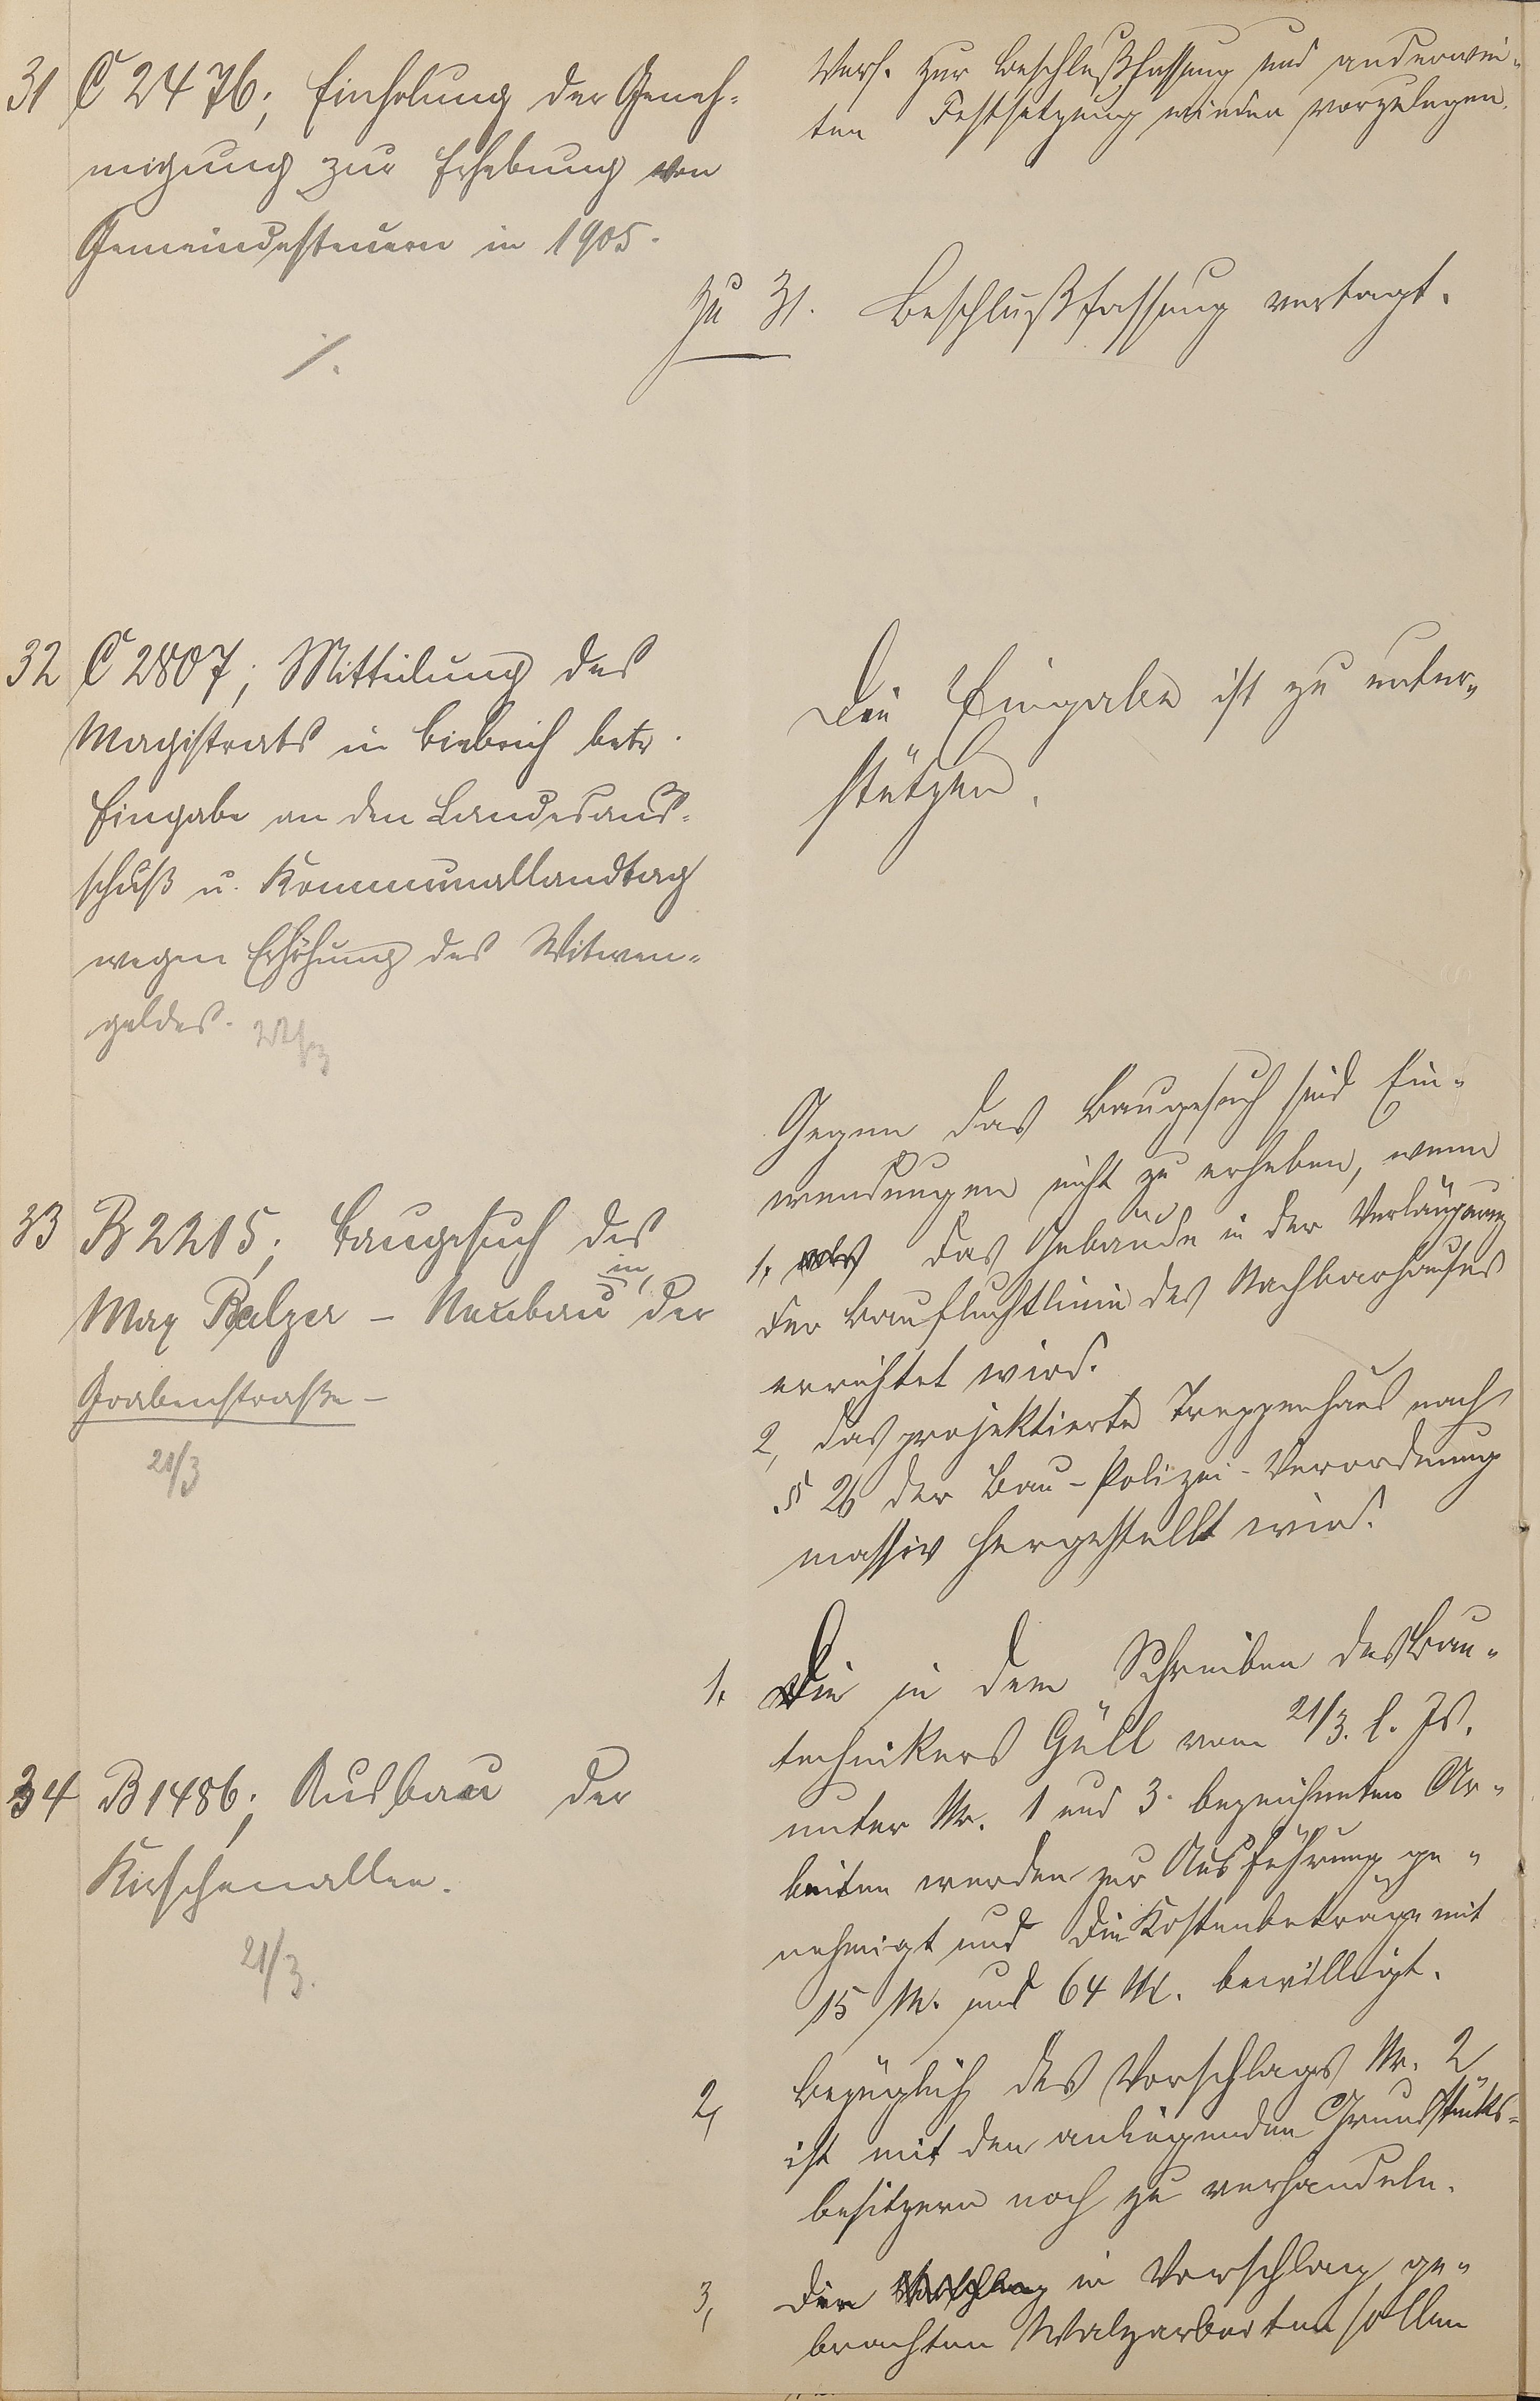 Vers. zur Beschlußfassung und anderwei-
ten Festsetzung wieder vorzulegen.
31 C 2476; Einholung der Geneh-
migung zur Erhebung von
Gemeindesteuern in 1905.
Zu 31. Beschlußfassung vertagt.
%.
32 C 2807; Mitteilung des
Magistrats in Biebrich betr.
Eingabe an den Landesaus-
schuß u. Kommunallandtag
wegen Erhöhung des Witwen-
geldes.
Die Eingabe ist zu unter-
stützen.
33 B 2215; Baugesuch des
Max Balzer – Neubau in der
Grabenstraße –
21/3
Gegen das Baugesuch sind Ein-
wendungen nicht zu erheben, wenn
1. das Gebäude in der Verlängerung
der Baufluchtlinie des Nachbarhauses
errichtet wird.
2, das projektierte Treppenhaus nach
§ 26 der Bau-Polizei-Verordnung
massiv hergestellt wird.
34 B 1486; Ausbau der
Kirschenallee.
21/3.
1. Die in dem Schreiben des Bau-
technikers Güll vom 21/3. l. Js.
unter Nr. 1 und 3 bezeichneten Ar-
beiten werden zur Ausführung ge-
nehmigt und die Kostenbeträge mit
15 M. und 64 M. bewilligt.
2, Bezüglich des Vorschlags Nr. 2
ist mit den anliegenden Grundstücks-
besitzern noch zu verhandeln.
3, Die in Vorschlag ge-
brachten Walzarbeiten sollen